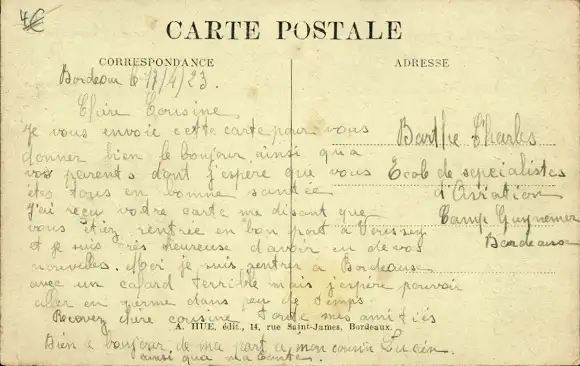 4€
CARTE POSTALE
CORRESPONDANCE
Bordeau le 17/4/23.
Chère Cousine
Je vous envoie cette carte pour vous
donner bien le bonjour ainsi qua
vos parents dont j'espère que vous
êtes tous en bonne santée
J'ai reçu votre carte me disant que
vous étiez rentrée en bon port à
et je suis très heureuse d'avoir eu de vos
nouvelles. Moi je suis rentrer a Bordeaux
avec un cafard terrible mais j'espère pouvoir
aller en perme dans peu de temps.
Recevez chère cousine toute mes amitiés
Bien le bonjour de ma part a mon cousin Lucien.
ainsi qua ma tante.
ADRESSE
Barthe Charles
Ecole de sepicialistes
d'Aviation
Camp Guynemer
Bordeaux
A. HUE, édit., 14, rue Saint-James, Bordeaux.